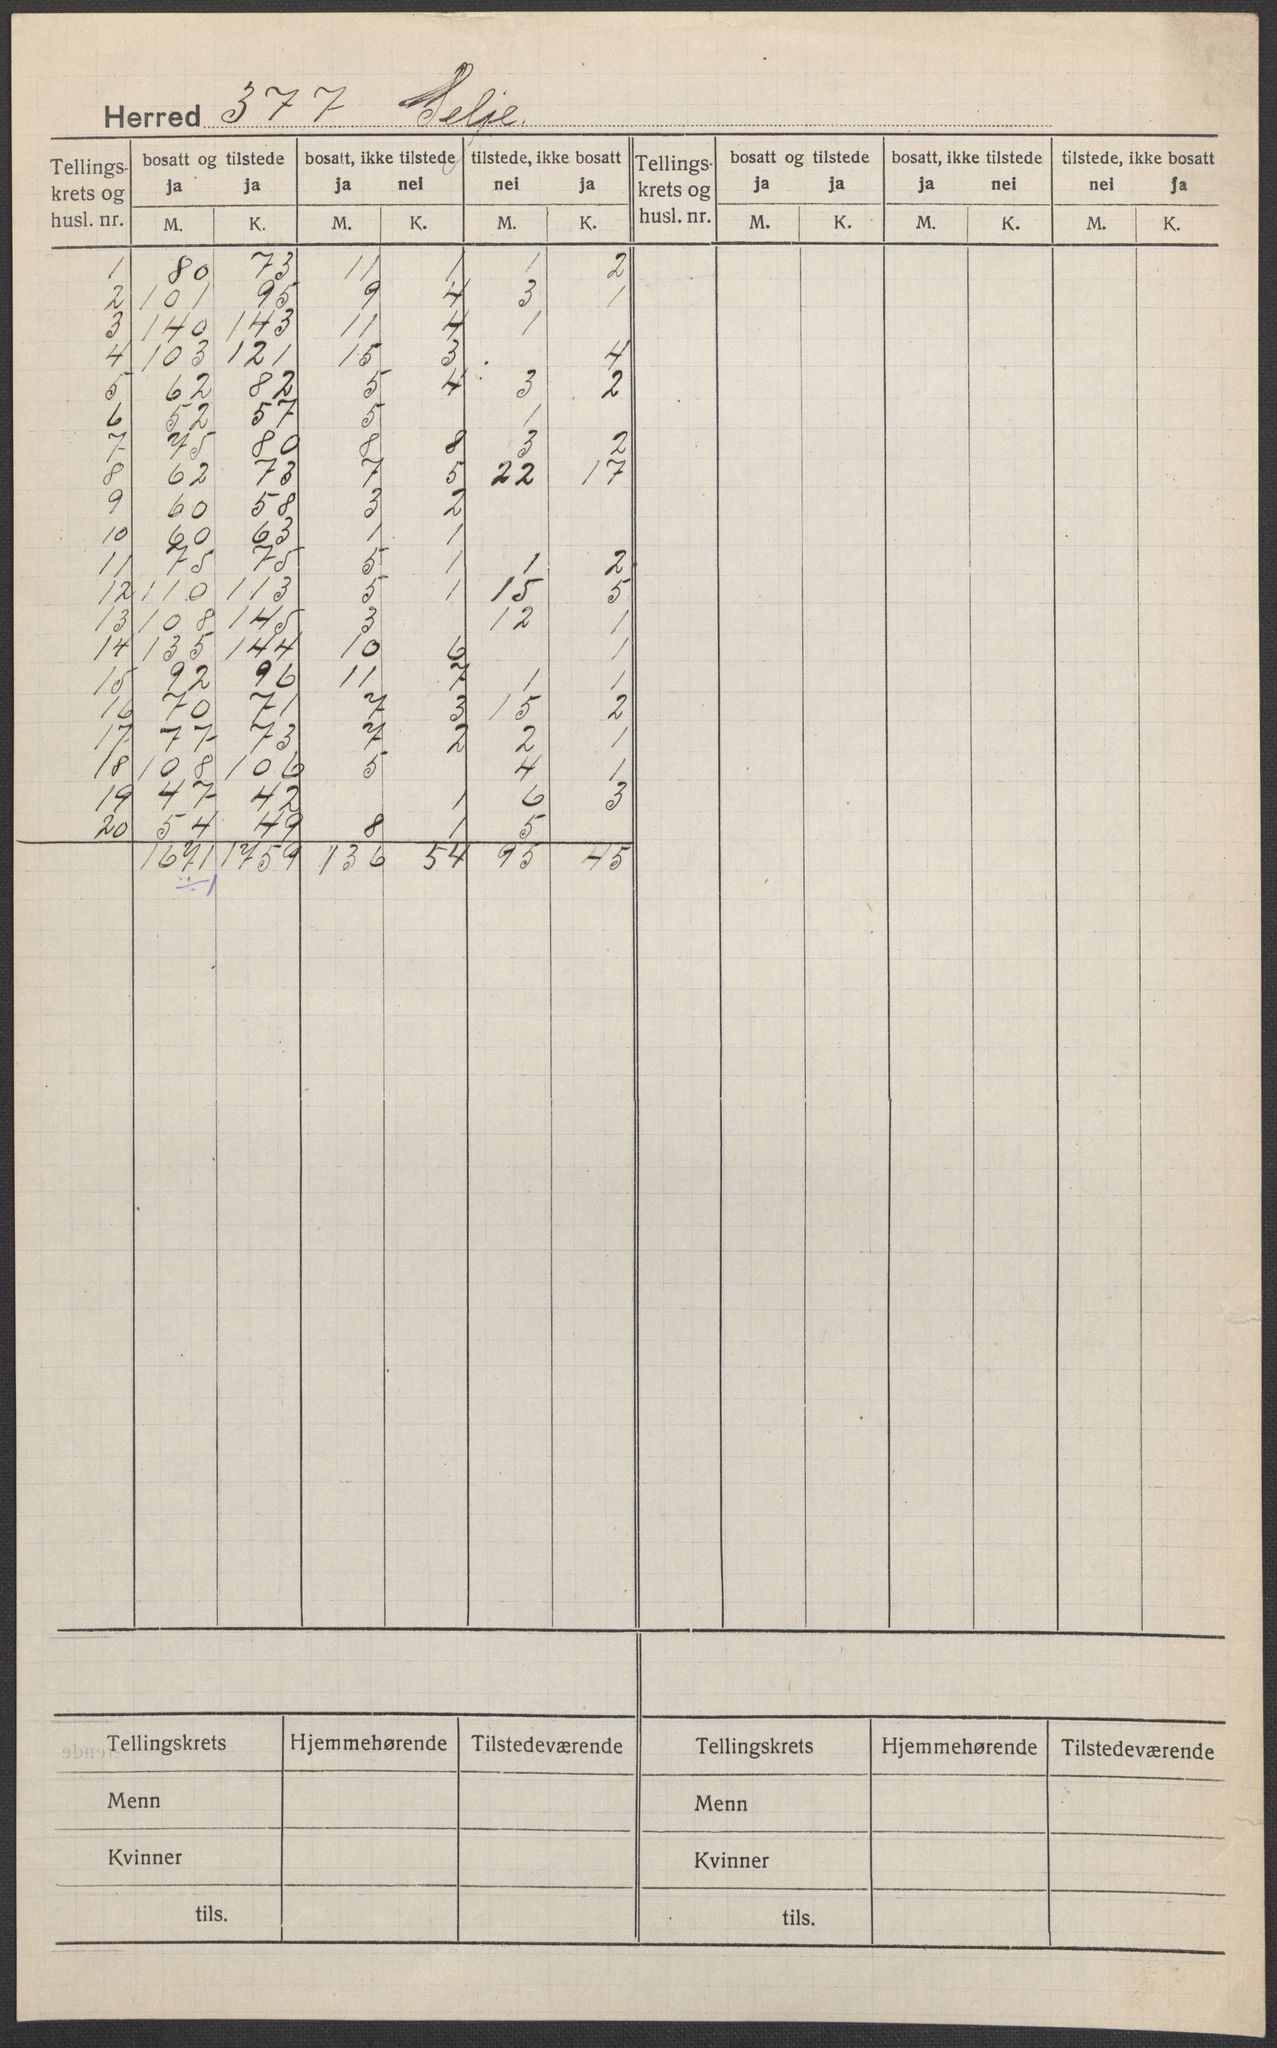 Herred 377 Selje.
Tellings-krets og husl. nr. | bosatt og tilstede ja ja | bosatt, ikke tilstede ja nei | tilstede, ikke bosatt nei ja | Tellings-krets og husl. nr. | bosatt og tilstede ja ja | bosatt, ikke tilstede ja nei | tilstede, ikke bosatt nei ja
M. K. M. K. M. K. M. K. M. K. M. K.
1 80 73 11 1 1 2
2 101 95 9 4 3 1
3 140 143 11 4 1
4 103 121 15 3 4
5 62 82 5 4 3 2
6 52 57 5 1
7 75 80 8 8 3 2
8 62 73 7 5 22 17
9 60 58 3 2
10 60 63 1 1
11 75 75 5 1 1 2
12 110 113 5 1 15 5
13 108 145 3 12 1
14 135 144 10 6 1
15 92 96 11 7 1 1
16 70 71 7 3 15 2
17 77 73 7 2 2 1
18 108 106 5 4 1
19 47 42 1 6 3
20 54 49 8 1 5
1671 1759 136 54 95 45
÷1
Tellingskrets Hjemmehørende Tilstedeværende Tellingskrets Hjemmehørende Tilstedeværende
Menn Menn
Kvinner Kvinner
tils. tils.